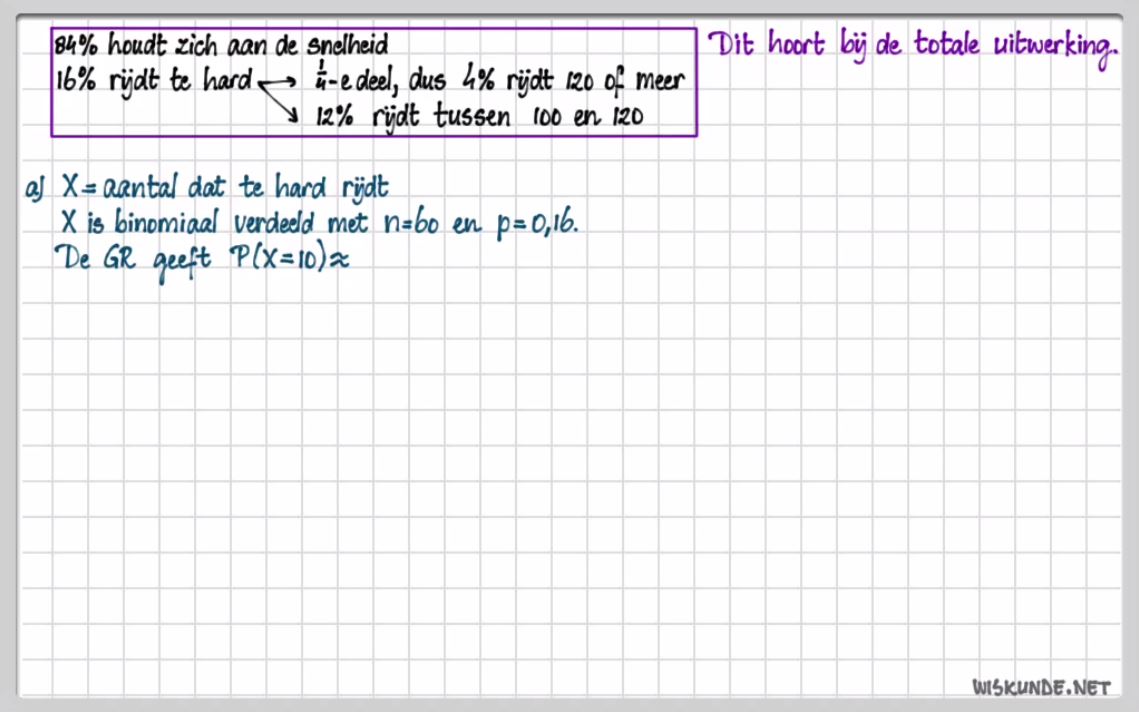 84% houdt zich aan de snelheid
16% rijdt te hard → 1/4-e deel, dus 4% rijdt 120 of meer
↘ 12% rijdt tussen 100 en 120
Dit hoort bij de totale uitwerking.
a) X = aantal dat te hard rijdt
X is binomiaal verdeeld met n=60 en p=0,16.
De GR geeft P(X=10)≈
WISKUNDE.NET